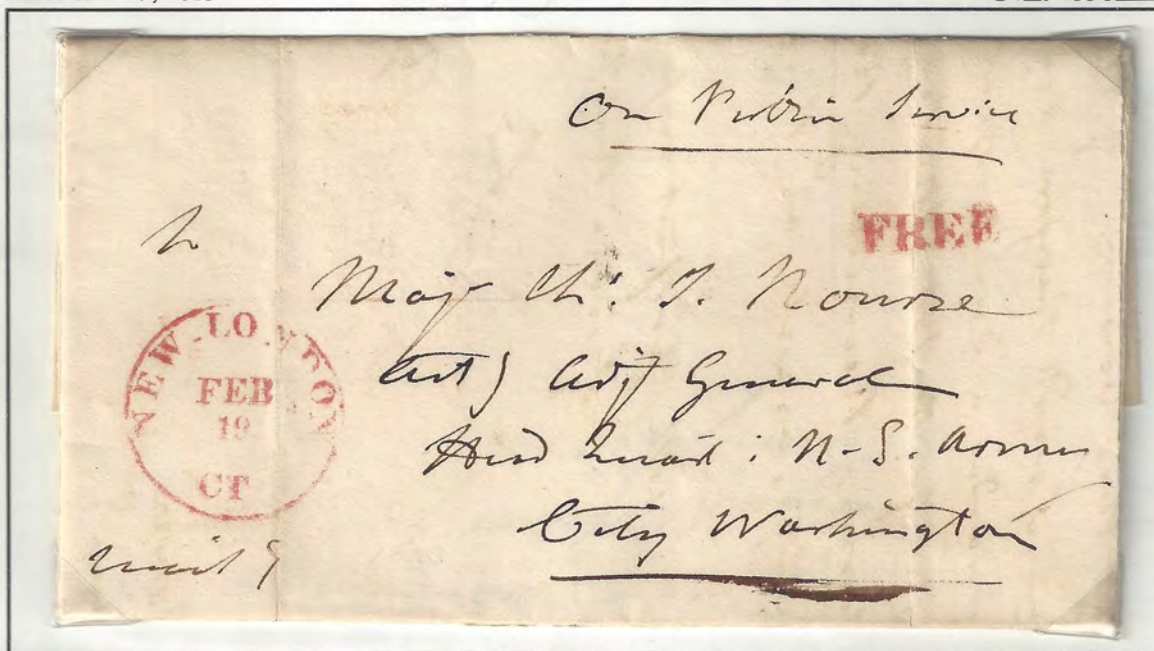 On Public Service
FREE
To
Maj Ch: J. Nourse
Act) Adjt General
Head Quart: U.S. Army
City Washington
NEW-LONDON
FEB
19
CT